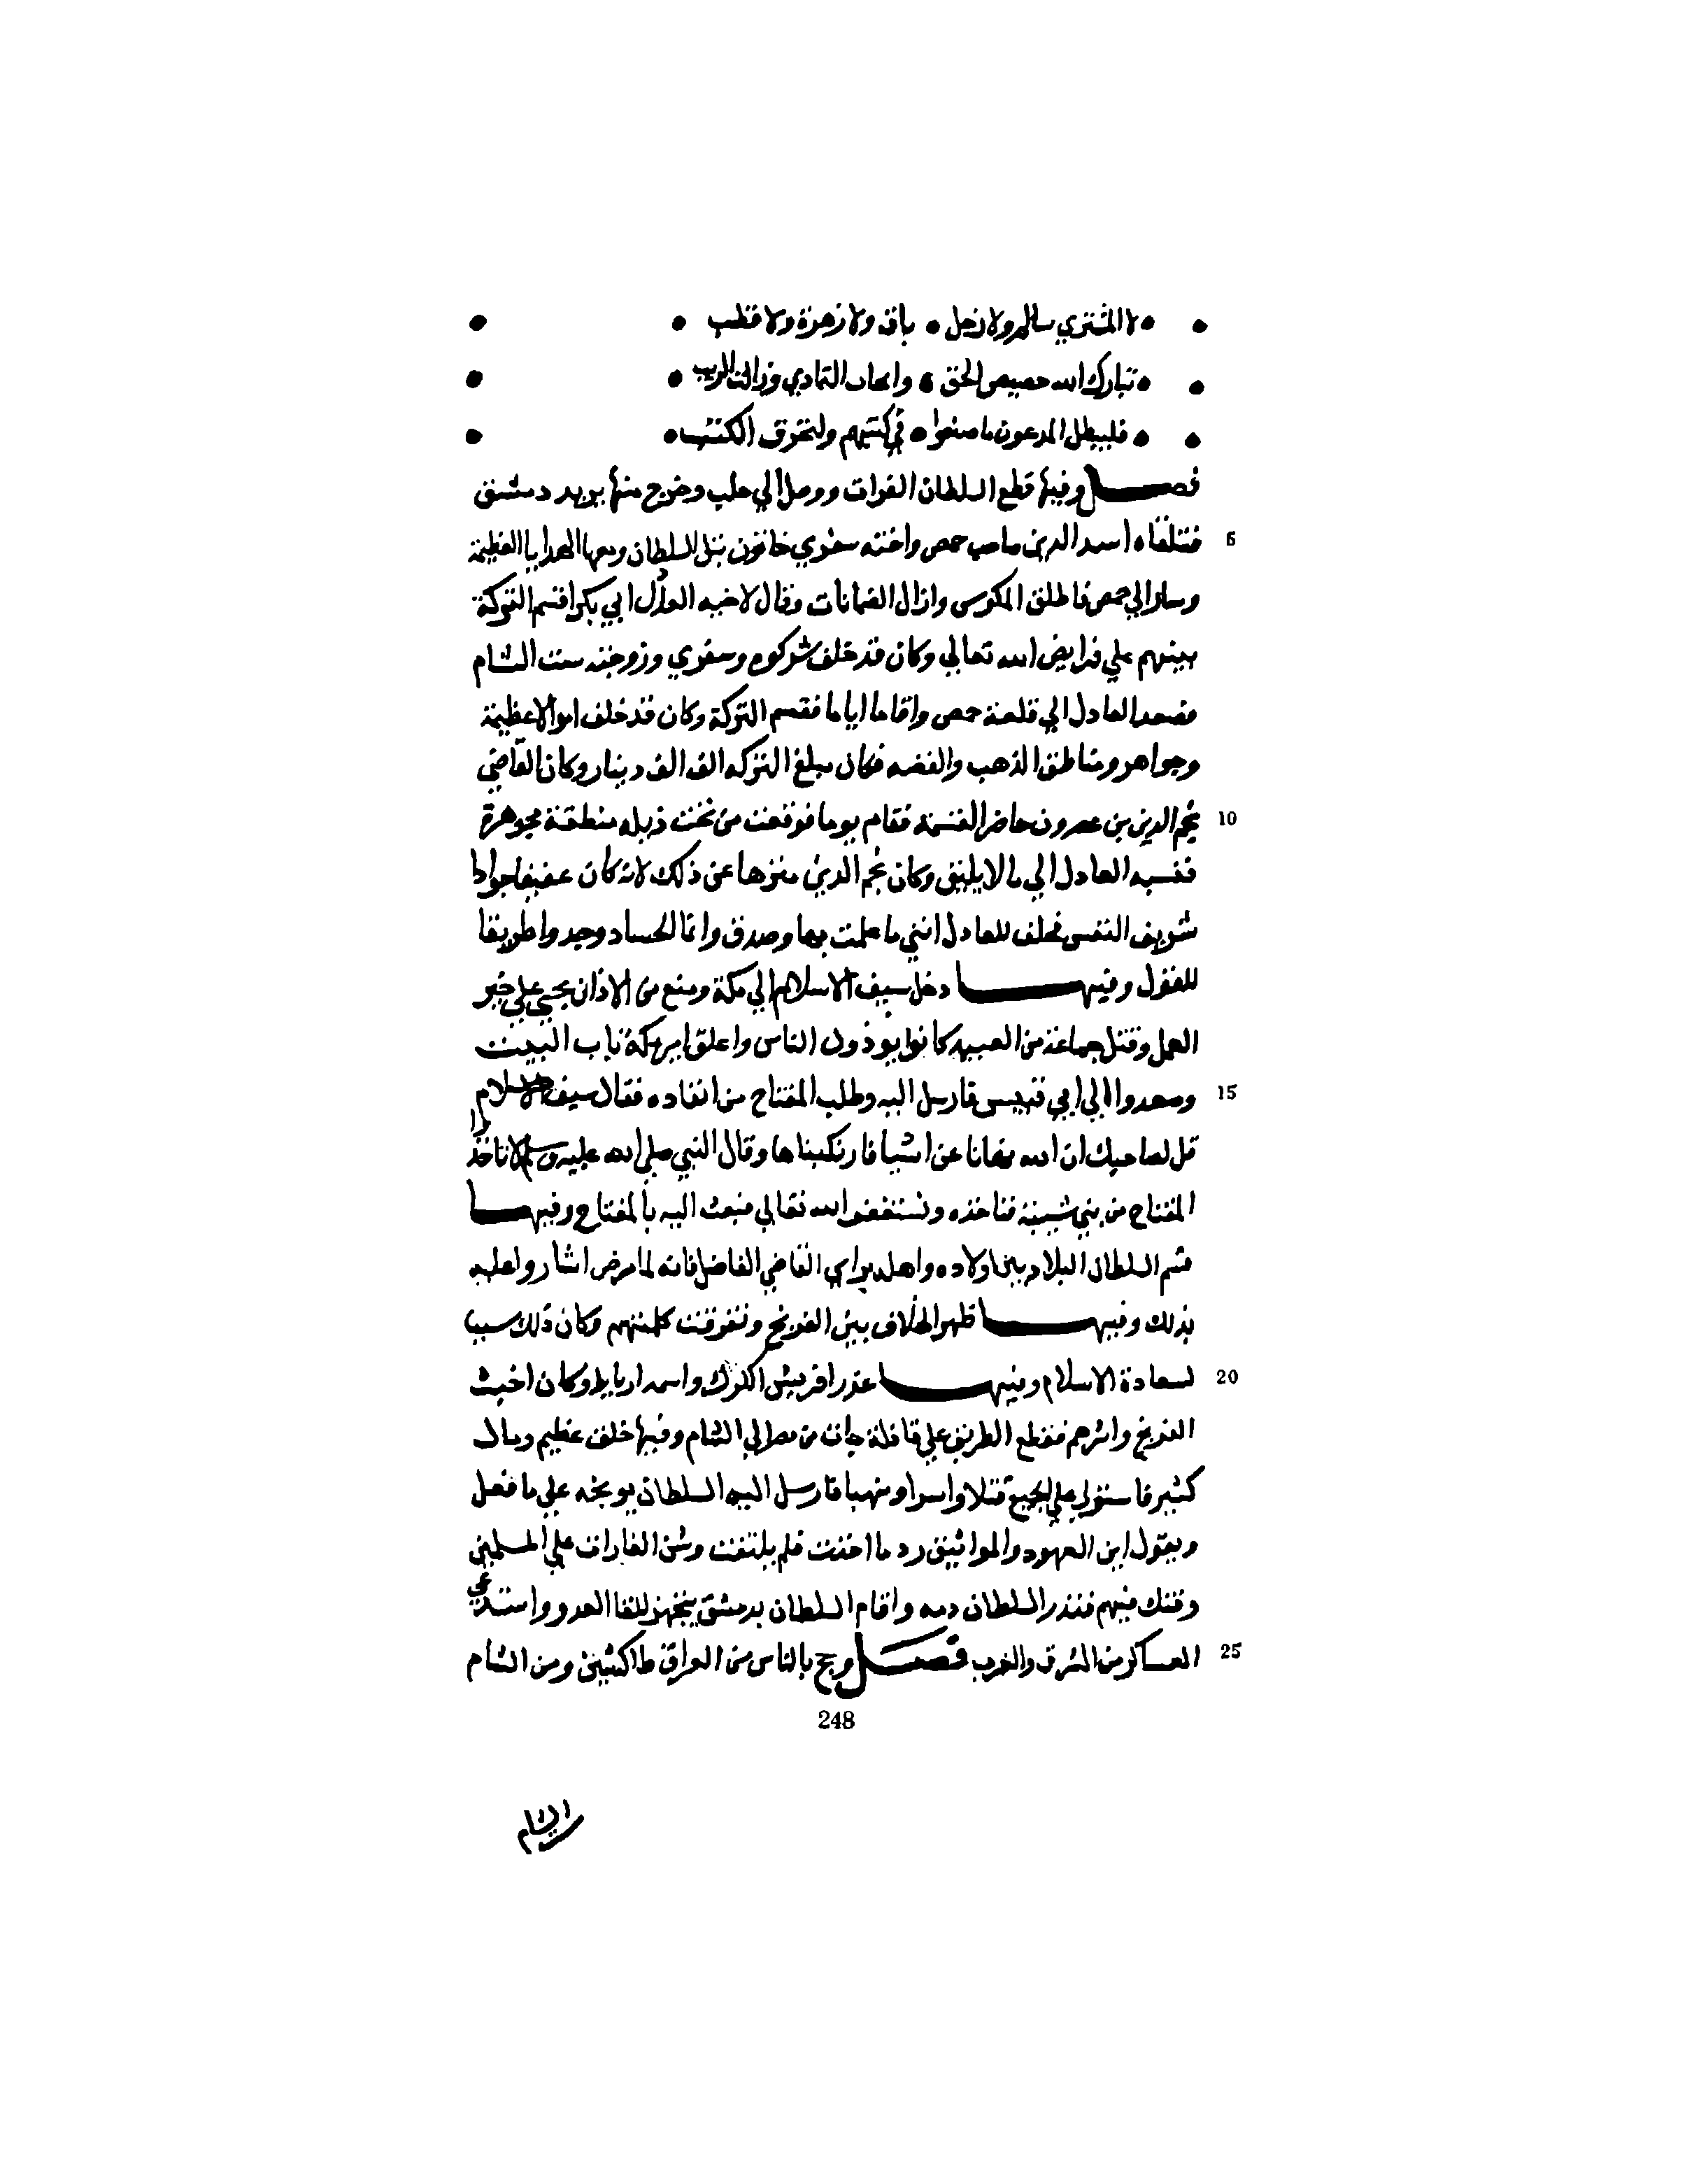 • • لا المشتري سالم ولا زحل • باق ولا زهرة ولا قطب • •
• • تبارك الله حصحص الحق • وانجاب التمادي وزالت الريب • •
• • فليبطل المدعون ما صنعوا • في كتبهم ولتخرق الكتب • •
فصل وفيها قطع السلطان الفرات ووصل الي حلب وخرج منها يريد دمشق
5 فتلقاه اسد الدين صاحب حمص واخته سفري خاتون بتل السلطان ومعها الهدايا العظيمة
وسار الي حمص فاطلق المكوس وازال الضمانات وقال لاخيه العادل ابي بكر اقسم التركة
بينهم علي فرايض الله تعالي وكان قد خلف شركوه وسفري وزوجته ست الشام
فصعد العادل الي قلعة حمص واقاما اياما فقسم التركة وكان قد خلف اموالا عظيمة
وجواهر ومناطق الذهب والفضه فكان مبلغ التركه الف الف دينار وكان القاضي
10 نجم الدين بن عصرون حاضر القسمة فقام يوما فوقعت من تحت ذيله منطقة مجوهرة
فنسبه العادل الي ما لا يليق وكان نجم الدين منزها عن ذلك لانه كان عفيفا جوادا
شريف النفس فحلف للعادل انني ما علمت بها وصدق وانما الحساد وجدوا طريقا
للقول وفيها دخل سيف الاسلام الي مكة ومنع من الاذان بحي علي خير
العمل وقتل جماعة من العبيد كانوا يوذون الناس واغلق امير مكة باب البيت
15 وصعدوا الي ابي قبيس فارسل اليه وطلب المفتاح من انفاده فقال سيف الاسلام
قل لصاحبك ان الله نهانا عن اشيا فارتكبناها وقال النبي صلي الله عليه وسلم لا تاخذوا
المفتاح من بني شيبة فناخذه ونستغفر الله تعالي فبعث اليه بالمفتاح وفيها
قسم السلطان البلاد بين اولاده واهله براي القاضي الفاضل فانه لما مرض اشاروا عليه
بذلك وفيها ظهر الخلاف بين الفرنج وتفرقت كلمتهم وكان ذلك سببا
20 لسعادة الاسلام وفيها غدر افرينس الكرك واسمه ارياط وكان اخبث
الفرنج واشرهم فقطع الطريق علي قافلة جات من مصر الي الشام وفيها خلق عظيم ومال
كثير فاستولي علي الجميع قتلا واسرا ونهبا فارسل اليه السلطان يوبخه علي ما فعل
ويقول اين العهود والمواثيق رد ما اخذت فلم يلتفت وشن الغارات علي المسلمين
وفتك فيهم فنذر السلطان دمه واقام السلطان بدمشق يتجهز للقا العدو واستدعي
25 العساكر من الشرق والغرب فصل وحج بالناس من العراق طاشتكين ومن الشام
248